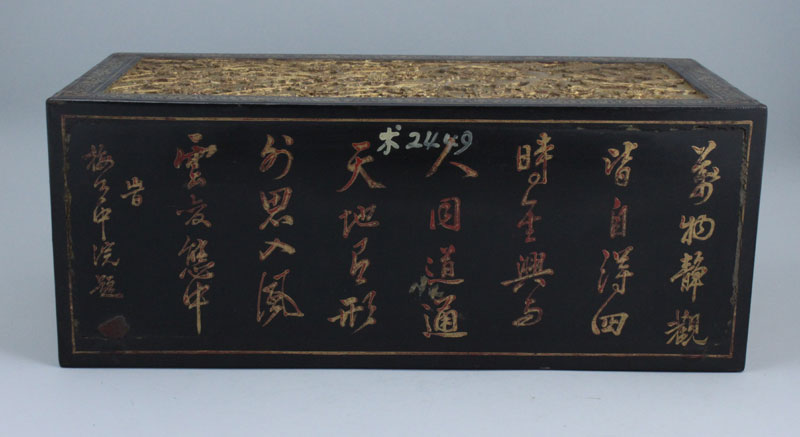 萬物靜觀
皆自得四
時佳興与
人同道通
天地有形
外思入風
雲变態中
旹
梅月中浣題
术2449